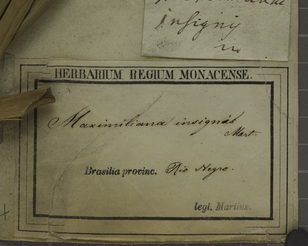 insigny
HERBARIUM REGIUM MONACENSE.
Maximiliana insignis
Mart.
Brasilia provinc. Rio Negro.
legi. Martius.